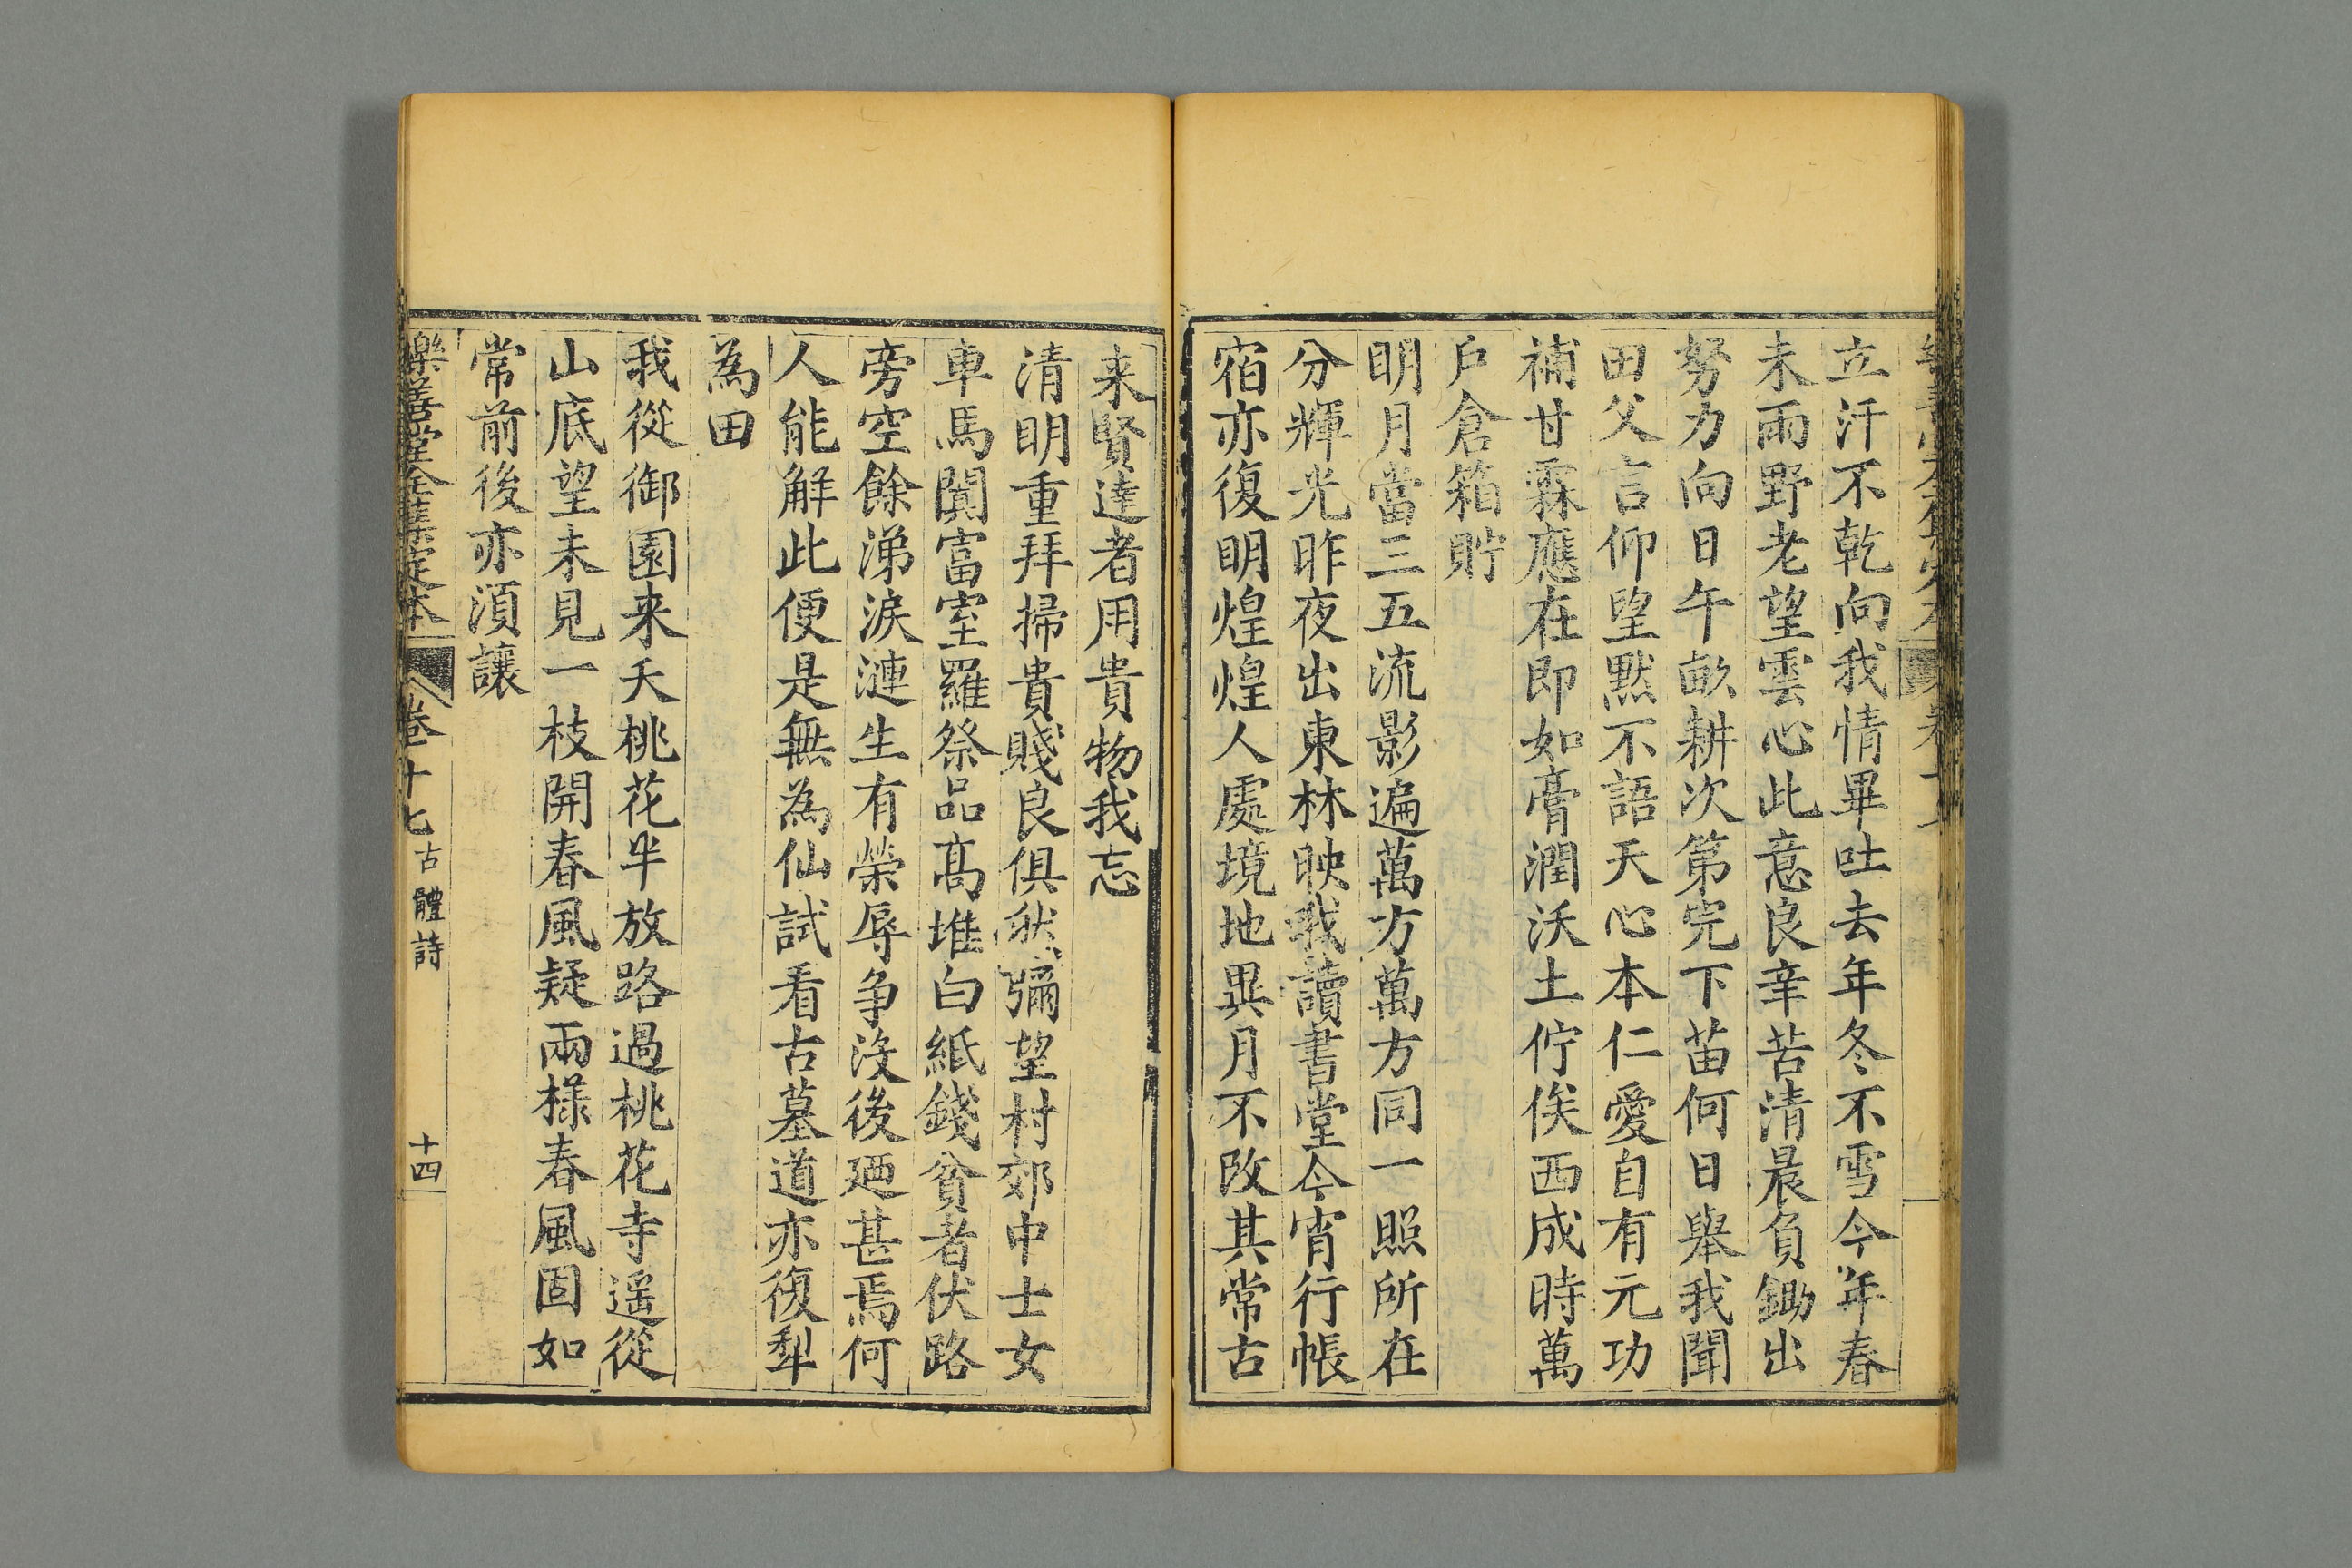 立汗不乾向我情畢吐去年冬不雪今年春
未雨野老望雲心此意良辛苦清晨負鋤出
努力向日午畝耕次第完下苗何日舉我聞
田父言仰望黙不語天心本仁愛自有元功
補甘霖應在即如膏潤沃土佇俟西成時萬
戶倉箱貯
明月當三五流影遍萬方萬方同一照所在
分輝光昨夜出東林映我讀書堂今宵行帳
宿亦復明煌煌人處境地異月不改其常古
来賢達者用貴物我忘
清明重拜掃貴賤良俱然彌望村郊中士女
車馬闐富室羅祭品髙堆白紙錢貧者伏路
旁空餘涕淚漣生有榮辱争沒後廼甚焉何
人能觧此便是無為仙試看古墓道亦復犁
為田
我從御園来夭桃花半放路過桃花寺遥從
山底望未見一枝開春風疑兩様春風固如
常前後亦須讓
樂善堂全集定本 卷十七 古體詩 十四